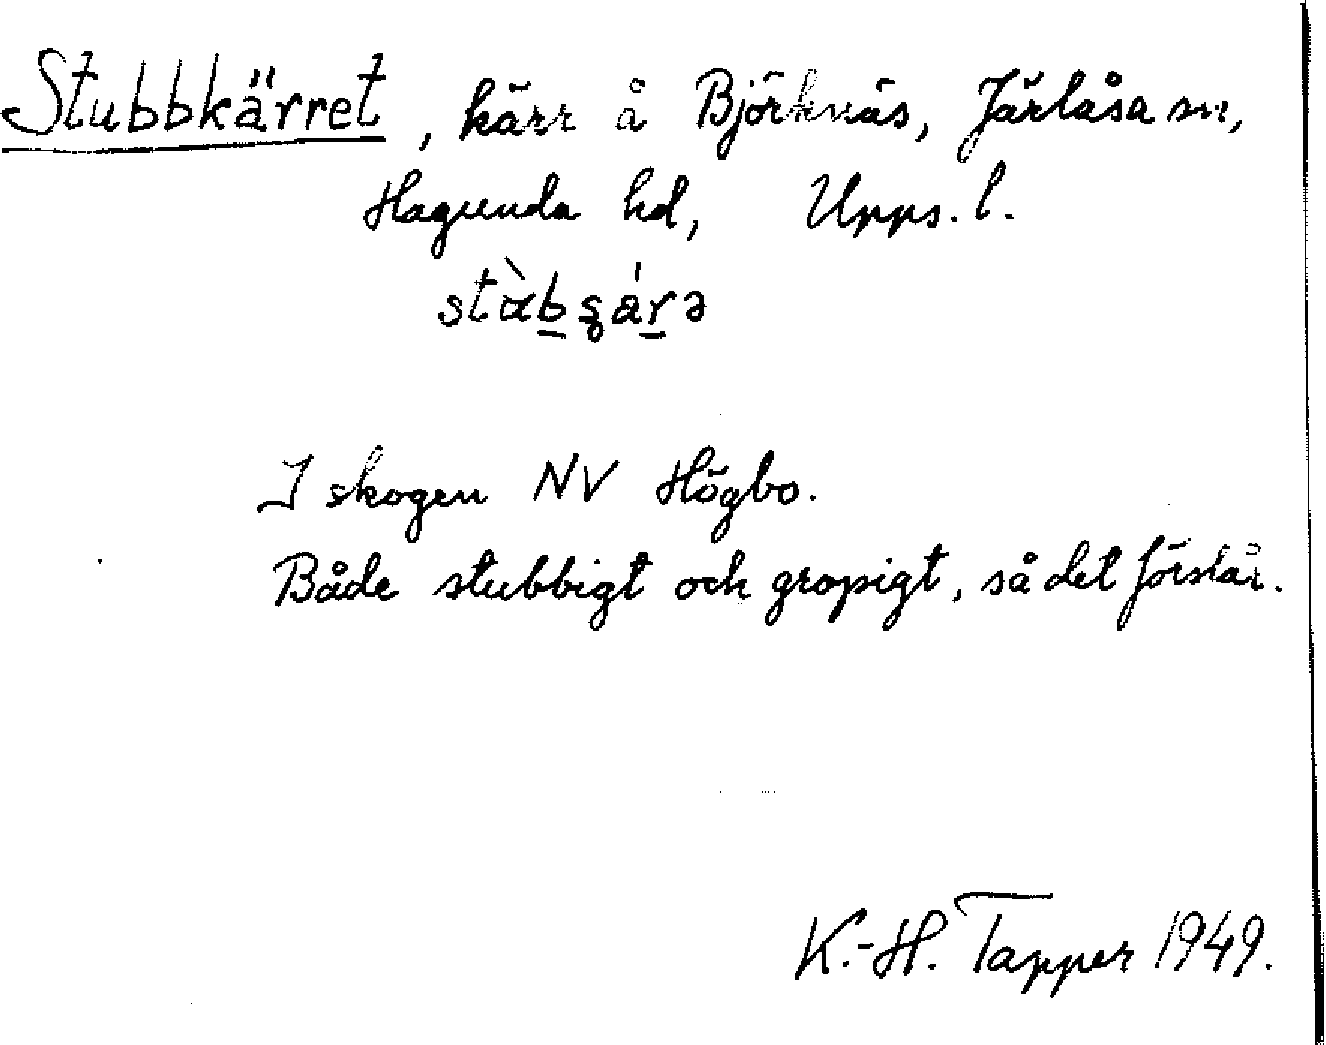 Stubbkärret, kärr å Björknäs, Järlåsa sn,
Hagunda hd, Upps. l.
I skogen NV Högbo.
Både stubbigt och gropigt, så det förslår.
K.-H. Tapper 1949.